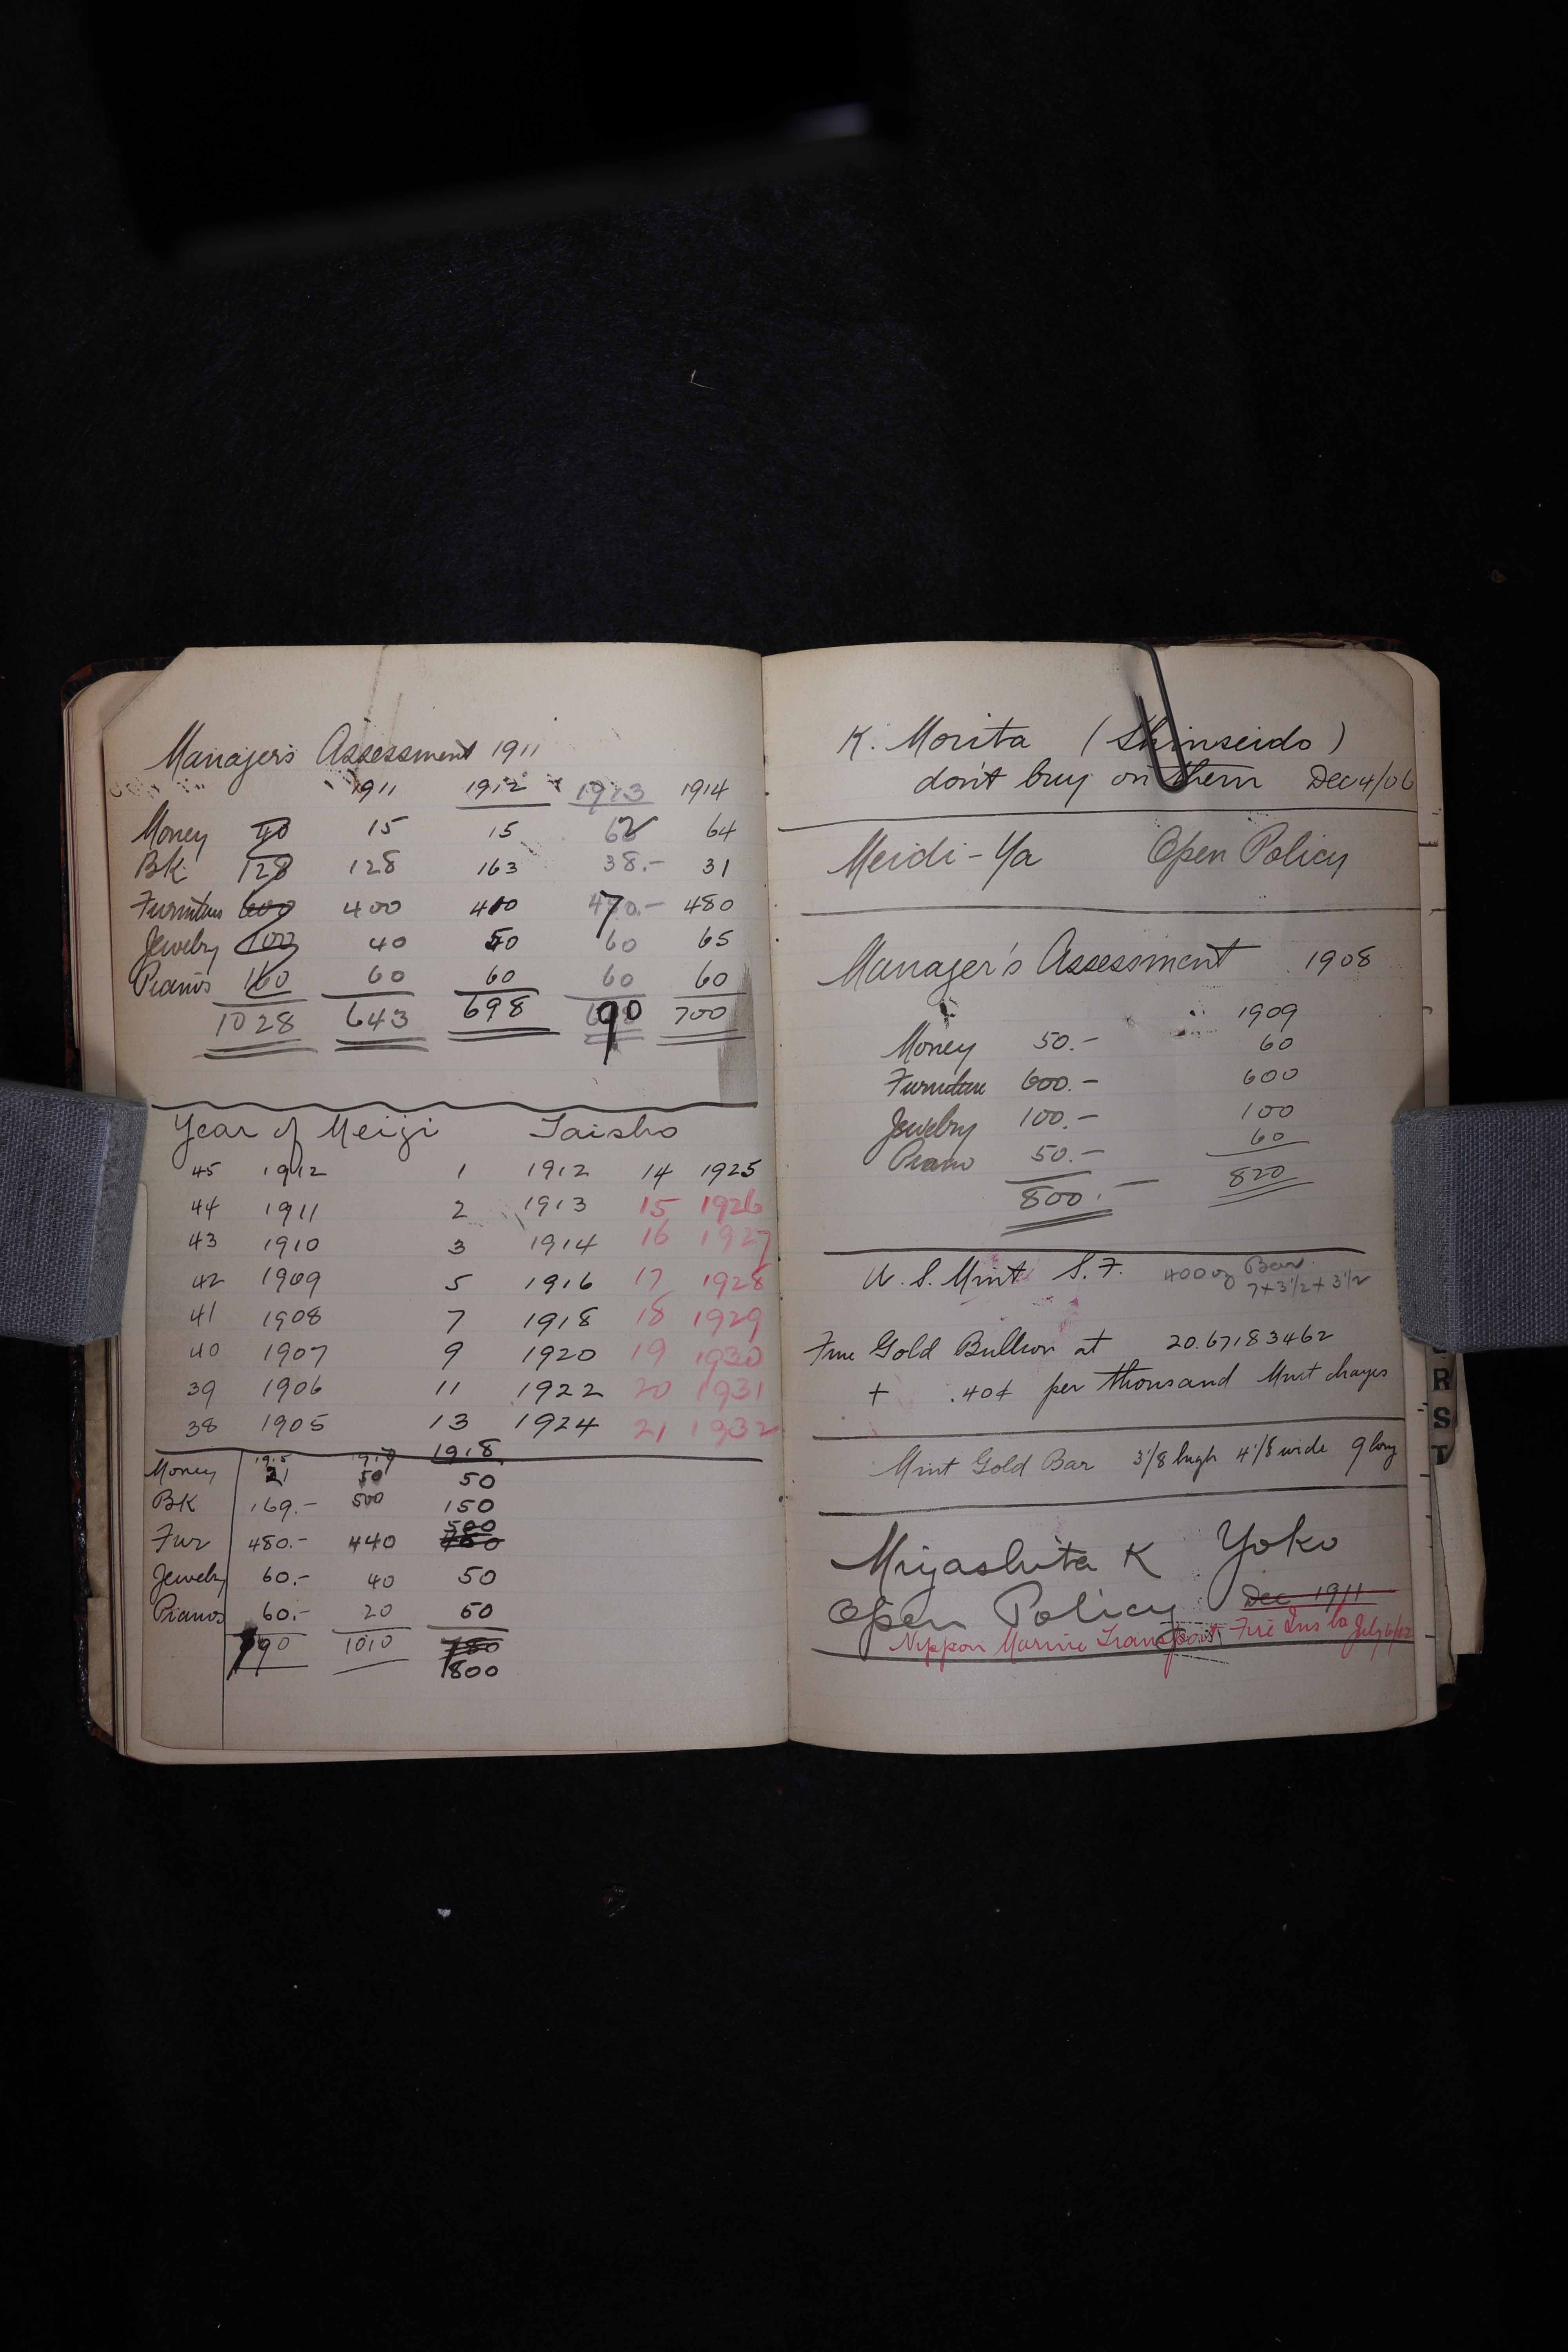 Manager's Assessment 1911
1911 1912 1913 1914
Money 40 15 15 62 64
BK. 128 128 163 38.- 31
Furniture 600 400 410 470.- 480
Jewelry 100 40 50 60 65
Pianos 160 60 60 60 60
1028 643 698 690 700
Year of Meiji Taisho
45 1912 1 1912 14 1925
44 1911 2 1913 15 1926
43 1910 3 1914 16 1927
42 1909 5 1916 17 1928
41 1908 7 1918 18 1929
40 1907 9 1920 19 1930
39 1906 11 1922 20 1931
38 1905 13 1924 21 1932
1915 1917 1918
Money 21 50 50
BK 169.- 500 150
500
Fur 480.- 440
Jewelry 60.- 40 50
Pianos 60.- 20 50
790 1010 780
800
K. Morita (Shinseido)
don't buy on them Dec 4/06
Meidi-Ya Open Policy
Manager's Assessment 1908
1909
Money 50.- 60
Furniture 600.- 600
Jewelry 100.- 100
Piano 50.- 60
800.- 820
U. S. Mint S. F. 400 oz Bar
7+3 1/2+3 1/2
Fine Gold Bullion at 20.67183462
+ .40¢ per thousand Mint charges
Mint Gold Bar 3 1/8 high 4 1/8 wide 9 long
Miyashita K Yoko
Open Policy Dec 1911
Nippon Marine Transport Fire Ins Co
R
S
T